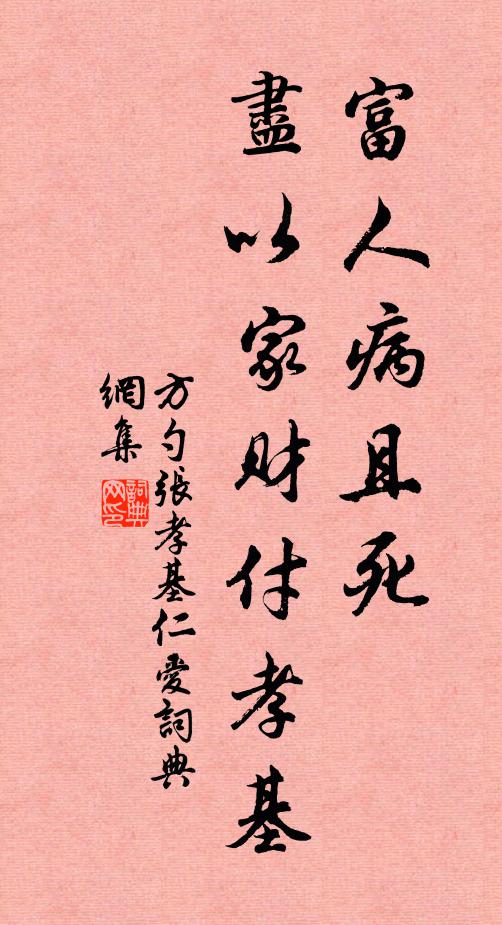 富人病且死
盡以家財付孝基
方勺張孝基仁愛詞典
網集
詞典
网印